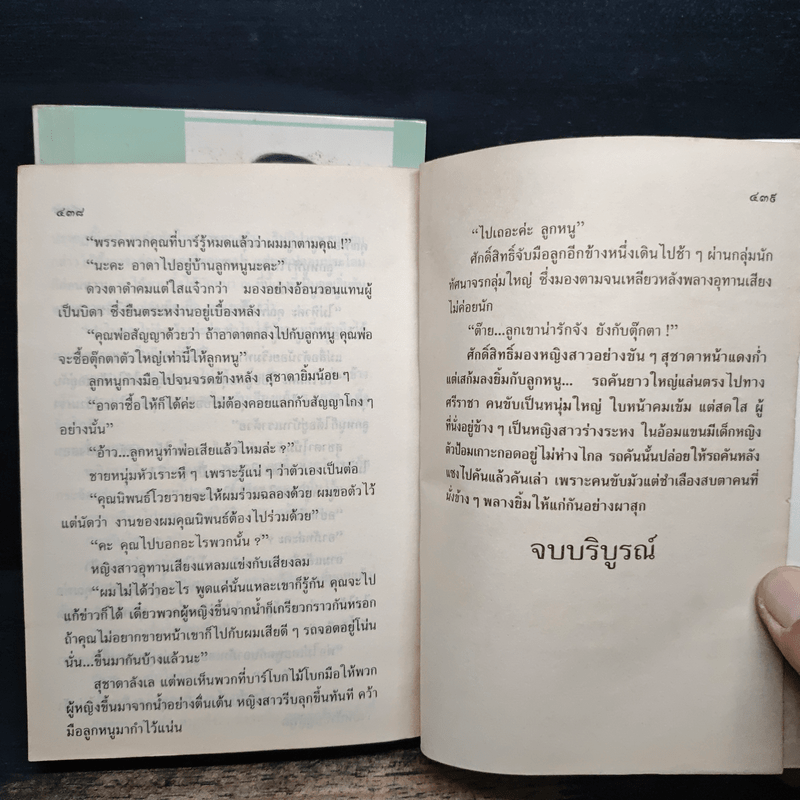 ๔๓๘
“พรรคพวกคุณที่บาร์รู้หมดแล้วว่าผมมาตามคุณ !”
“นะคะ อาดาไปอยู่บ้านลูกหนูนะคะ”
ดวงตาดำคมแต่ใสแจ๋วกว่า มองอย่างอ้อนวอนแทนผู้
เป็นบิดา ซึ่งยืนตระหง่านอยู่เบื้องหลัง
“คุณพ่อสัญญาด้วยว่า ถ้าอาดาตกลงไปกับลูกหนู คุณพ่อ
จะซื้อตุ๊กตาตัวใหญ่เท่านี้ให้ลูกหนู”
ลูกหนูกางมือไปจนจรดข้างหลัง สุชาดายิ้มน้อย ๆ
“อาดาซื้อให้ก็ได้ค่ะ ไม่ต้องคอยแลกกับสัญญาโกง ๆ
อย่างนั้น”
“อ้าว...ลูกหนูทำพ่อเสียแล้วไหมล่ะ ?”
ชายหนุ่มหัวเราะหึ ๆ เพราะรู้แน่ ๆ ว่าตัวเองเป็นต่อ
“คุณนิพนธ์โวยวายจะให้ผมร่วมฉลองด้วย ผมขอตัวไว้
แต่นัดว่า งานของผมคุณนิพนธ์ต้องไปร่วมด้วย”
“คะ คุณไปบอกอะไรพวกนั้น ?”
หญิงสาวอุทานเสียงแหลมแข่งกับเสียงลม
“ผมไม่ได้ว่าอะไร พูดแค่นั้นแหละเขาก็รู้กัน คุณจะไป
แก้ข่าวก็ได้ เดี๋ยวพวกผู้หญิงขึ้นจากน้ำก็เกรียวกราวกันหรอก
ถ้าคุณไม่อยากขายหน้าเขาก็ไปกับผมเสียดี ๆ รถจอดอยู่โน่น
นั่น...ขึ้นมากันบ้างแล้วนะ”
สุชาดาลังเล แต่พอเห็นพวกที่บาร์โบกไม้โบกมือให้พวก
ผู้หญิงขึ้นมาจากน้ำอย่างตื่นเต้น หญิงสาวรีบลุกขึ้นทันที คว้า
มือลูกหนูมากำไว้แน่น
๔๓๙
“ไปเถอะค่ะ ลูกหนู”
ศักดิ์สิทธิ์จับมือลูกอีกข้างหนึ่งเดินไปช้า ๆ ผ่านกลุ่มนัก
ทัศนาจรกลุ่มใหญ่ ซึ่งมองตามจนเหลียวหลังพลางอุทานเสียง
ไม่ค่อยนัก
“ต๊าย...ลูกเขาน่ารักจัง ยังกับตุ๊กตา !”
ศักดิ์สิทธิ์มองหญิงสาวอย่างขัน ๆ สุชาดาหน้าแดงก่ำ
แต่เสก้มลงยิ้มกับลูกหนู... รถคันยาวใหญ่แล่นตรงไปทาง
ศรีราชา คนขับเป็นหนุ่มใหญ่ ใบหน้าคมเข้ม แต่สดใส ผู้
ที่นั่งอยู่ข้าง ๆ เป็นหญิงสาวร่างระหง ในอ้อมแขนมีเด็กหญิง
ตัวป้อมเกาะกอดอยู่ไม่ห่างไกล รถคันนั้นปล่อยให้รถคันหลัง
แซงไปคันแล้วคันเล่า เพราะคนขับมัวแต่ชำเลืองสบตาคนที่
นั่งข้าง ๆ พลางยิ้มให้แก่กันอย่างผาสุก
จบบริบูรณ์